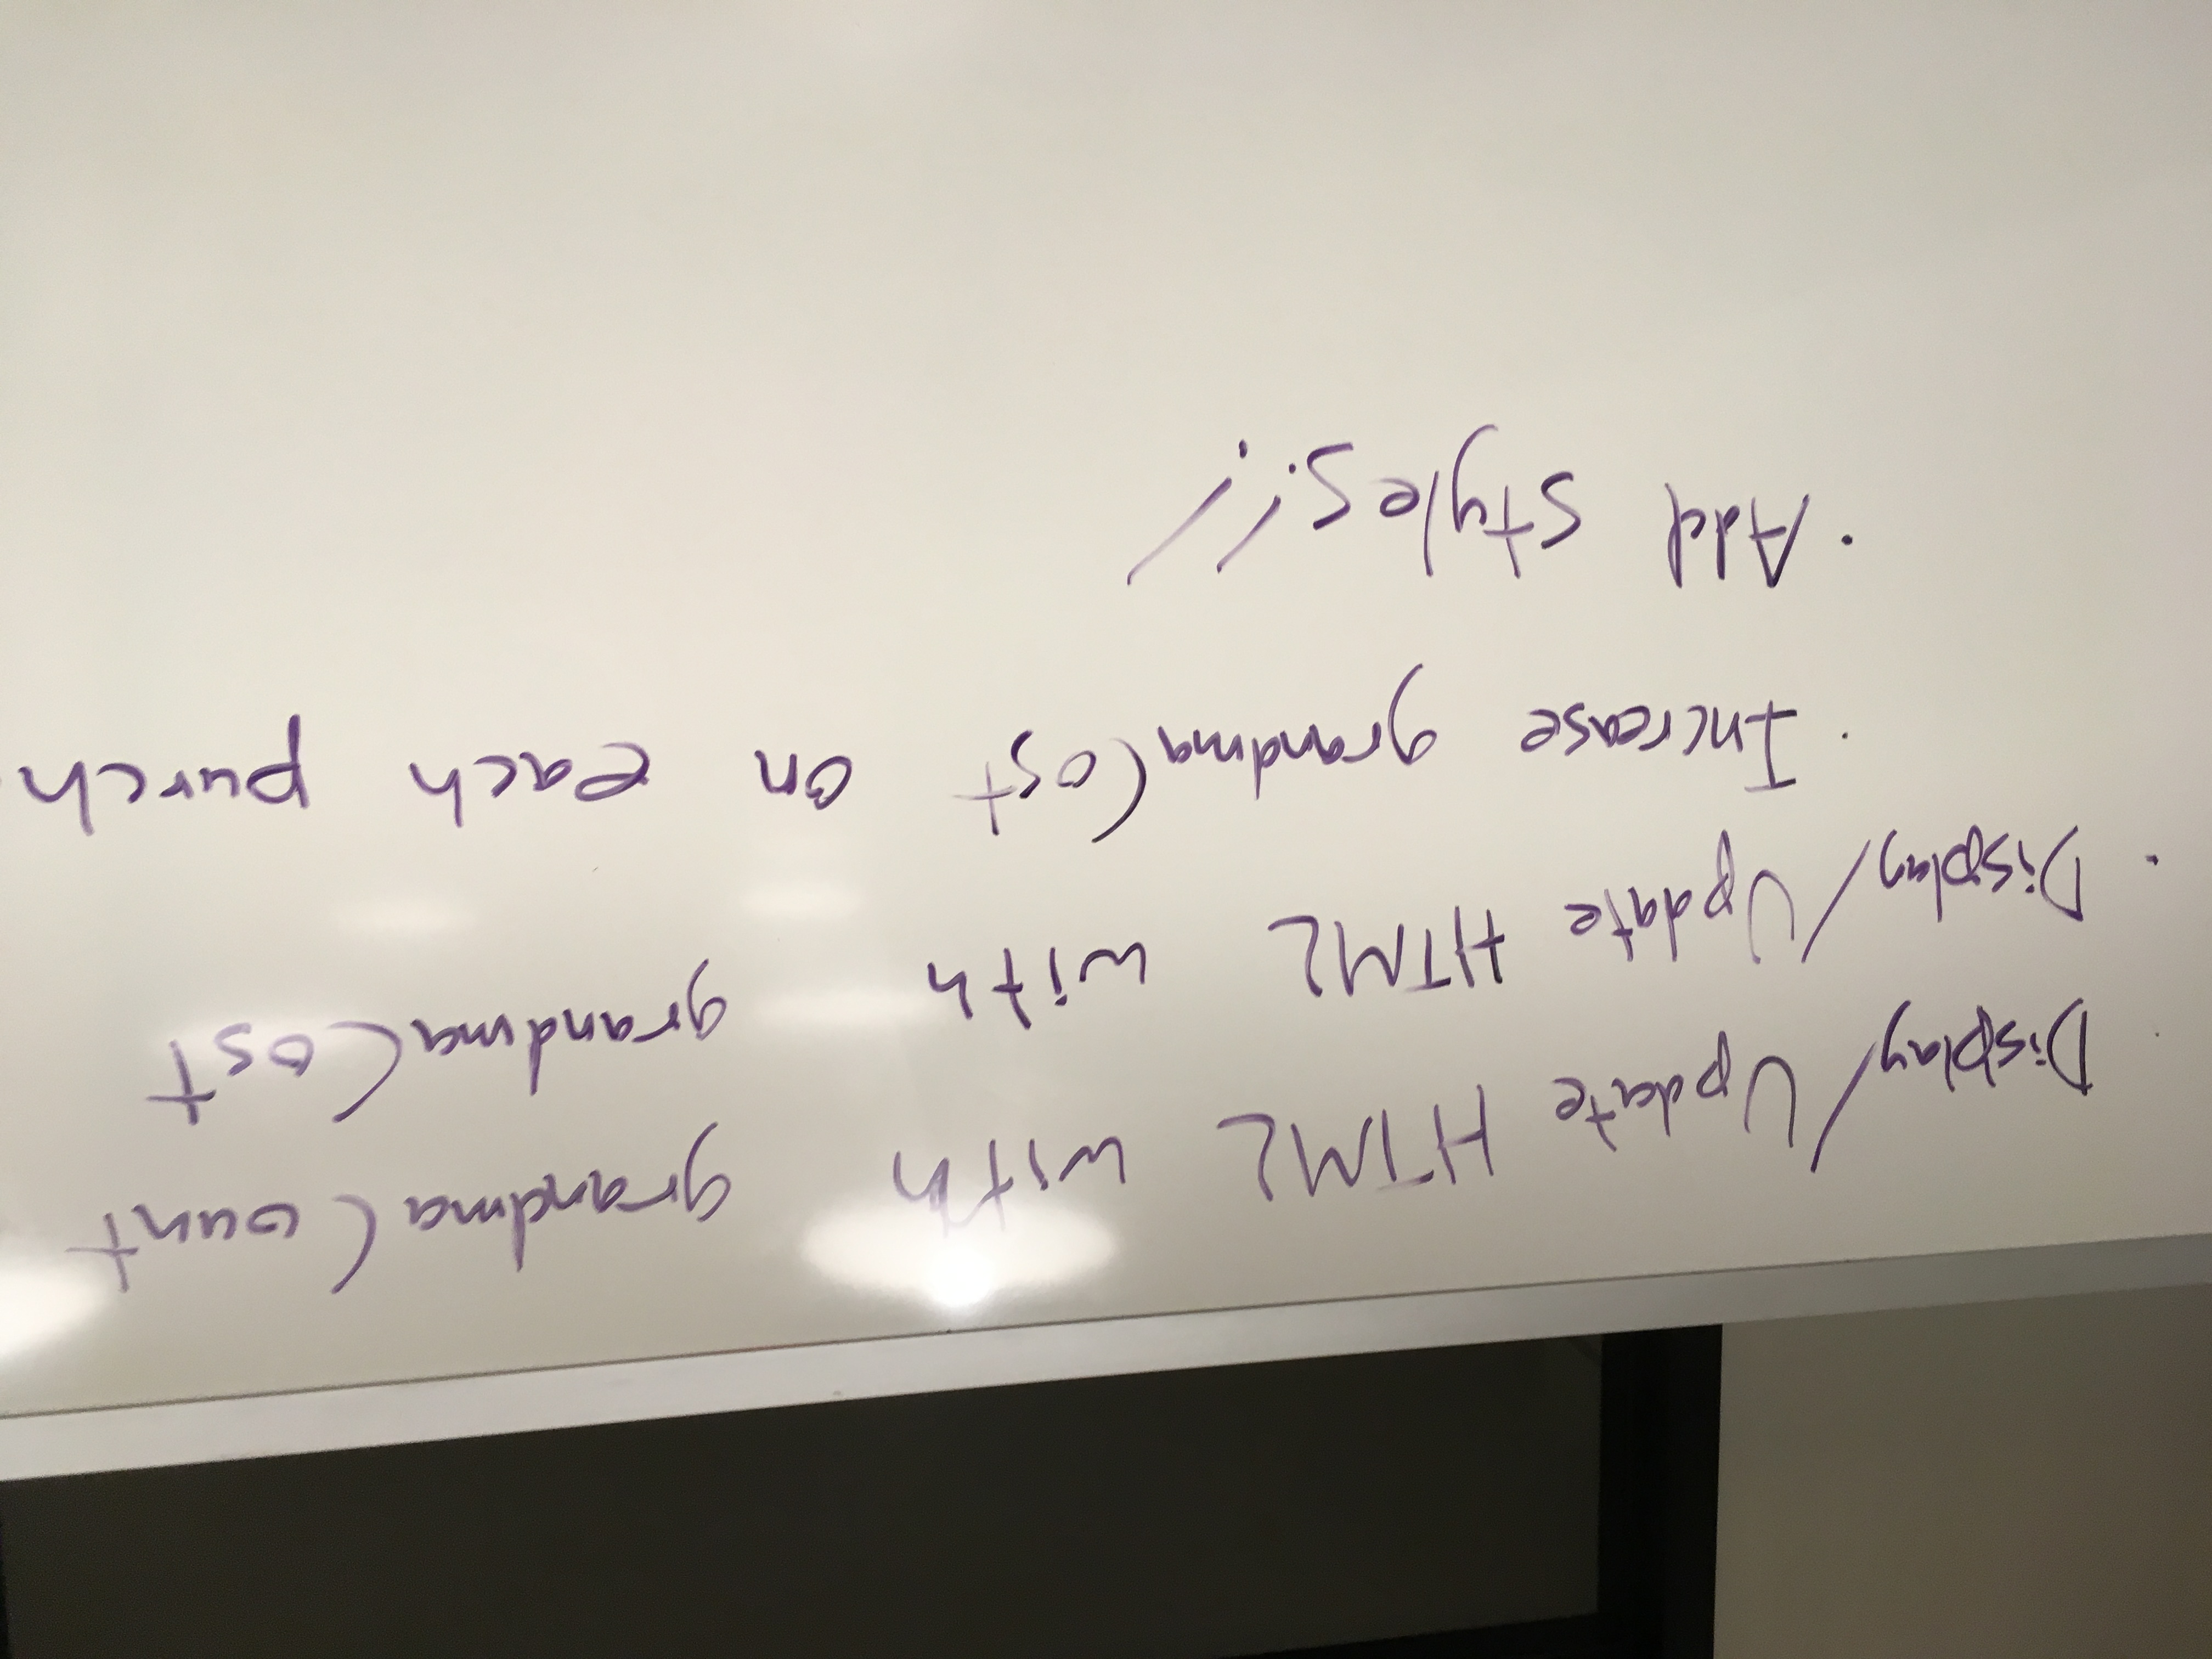 · Display/Update HTML with grandmaCount
· Display/Update HTML with grandmaCost
· Increase grandmaCost on each purch
· Add styles!!